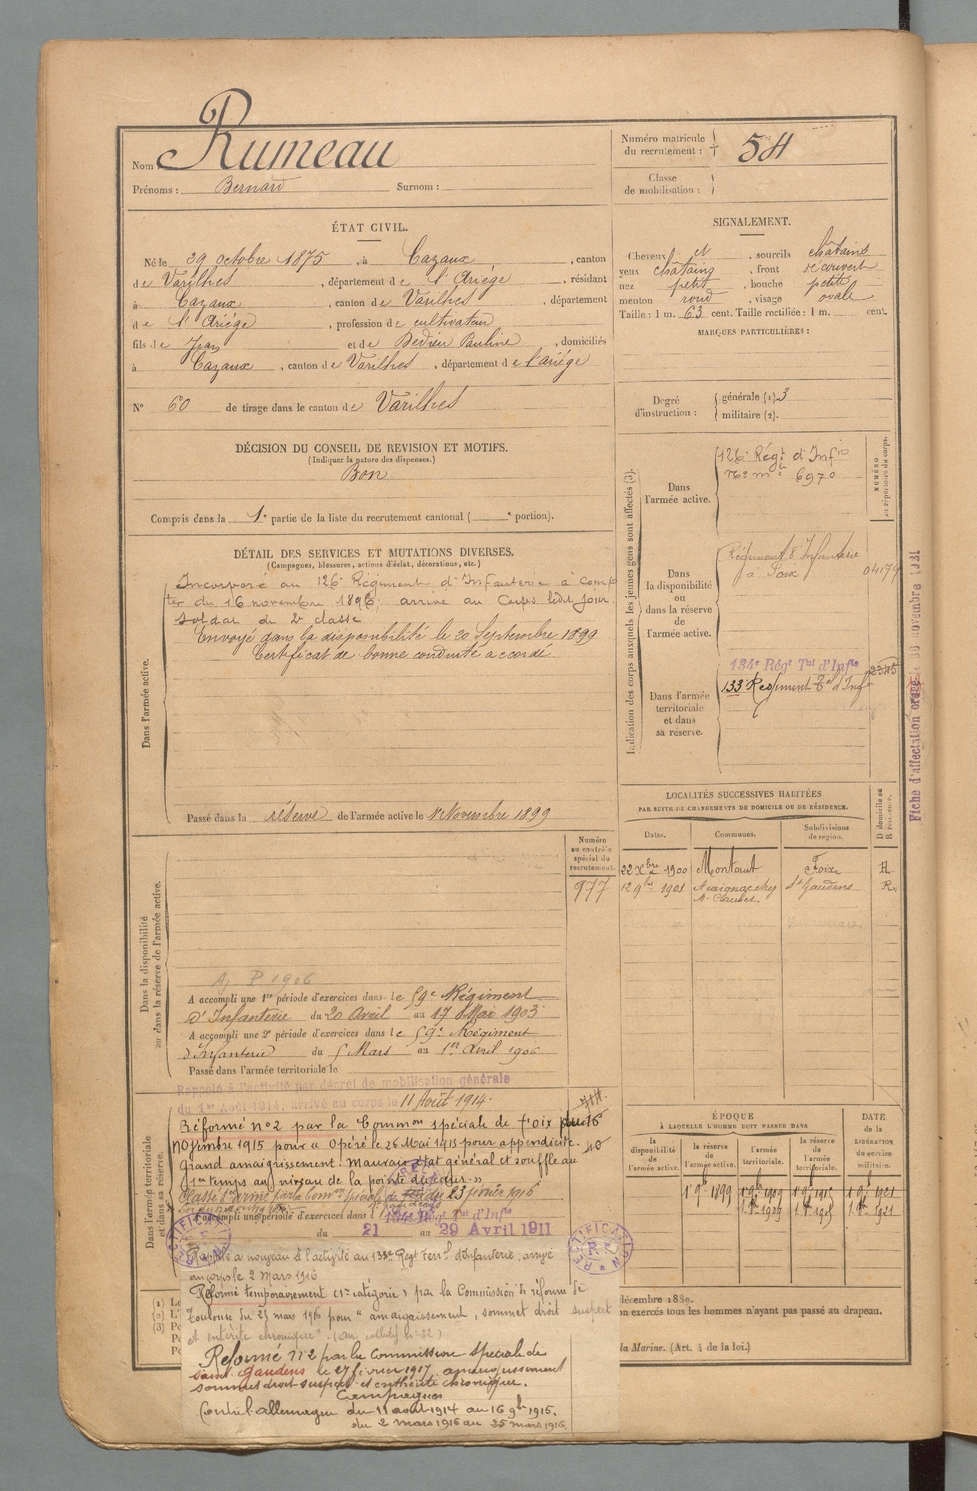 Nom Rumeau
Prénoms : Bernard Surnom :
Numéro matricule du recrutement : 54
Classe de mobilisation :
ÉTAT CIVIL.
Né le 29 octobre 1875, à Cazaux, canton
de Varilhes, département de l'Ariège, résidant
à Cazaux, canton de Varilhes, département
de l'Ariège, profession de cultivateur
fils de Jean et de Pauline, domiciliés
à Cazaux, canton de Varilhes, département de l'ariège
N° 60 de tirage dans le canton de Varilhes
SIGNALEMENT.
Cheveux et, sourcils châtains
yeux chatains, front découvert
nez petit, bouche petite
menton rond, visage ovale
Taille : 1 m. 63 cent. Taille rectifiée : 1 m. cent.
MARQUES PARTICULIÈRES :
Degré d'instruction : générale (1) 3
militaire (2).
DÉCISION DU CONSEIL DE REVISION ET MOTIFS.
(Indiquer la nature des dispenses.)
Bon
Compris dans la 1e partie de la liste du recrutement cantonal ( e portion).
DÉTAIL DES SERVICES ET MUTATIONS DIVERSES.
(Campagnes, blessures, actions d'éclat, décorations, etc.)
Dans l'armée active.
Incorporé au 126e Régiment d'Infanterie à comp
ter du 16 novembre 1896; arrivé au Corps ledit jour
soldat de 2e classe
Envoyé dans la disponibilité le 20 Septembre 1899
Certificat de bonne conduite accordé
Passé dans la réserve de l'armée active le 1er Novembre 1899
Indication des corps auxquels les jeunes gens sont affectés (3).
NUMÉRO au répertoire du corps.
Dans l'armée active.
126e Régt d'Infie
No mle 6970
Dans la disponibilité ou dans la réserve de l'armée active.
Régiment d'Infanterie
à Foix 04179
Dans l'armée territoriale et dans sa réserve.
134e Régt Tal d'Infie
133e Régiment Tal d'Infie
Fiche d'affectation
LOCALITÉS SUCCESSIVES HABITÉES
PAR SUITE DE CHANGEMENTS DE DOMICILE OU DE RÉSIDENCE.
Dates. Communes. Subdivisions de région. D domicile ou R résidence.
22 Xbre 1900 Montaut Foix R
12 9bre 1901 St Gaudens R
Numéro au contrôle spécial du recrutement.
977
Dans la disponibilité ou dans la réserve de l'armée active.
A accompli une 1re période d'exercices dans le 59e Régiment
d'Infanterie du 20 Avril au 17 Mai 1903
A accompli une 2e période d'exercices dans le 59e Régiment
d'Infanterie du 5 Mars au 1er Avril 1906
Passé dans l'armée territoriale le
Dans l'armée territoriale et dans sa réserve.
Rappelé à l'activité par décret de mobilisation générale
du 1er Août 1914, arrivé au corps le 11 Août 1914.
Réformé n°2 par la Common spéciale de Foix du 16
Novembre 1915 pour « Opéré le 26 Mai 1915 pour appendicite.
Grand amaigrissement. Mauvais état général et souffle au
1er temps au niveau de la pointe du cœur. »
Classé sce armé par la Comon spéciale de du 23 février 1916
A accompli une période d'exercices dans l 134e Régt Tal d'Infie
du 21 au 29 Avril 1911
RECTIFICATION
Rappelé à nouveau à l'activité au 133e Regt Terrl d'infanterie, arrivé
au corps le 2 mars 1916
Réformé temporairement (1re catégorie) par la Commission de réforme de
Toulouse du 25 mars 1916 pour "amaigrissement, sommet droit suspect
et entérite chronique".
Réformé n°2 par la commission spéciale de
Saint Gaudens le 27 février 1917, amaigrissement
sommet droit suspect et entérite chronique.
Campagnes
Contre l'allemagne du 11 août 1914 au 16 9bre 1915.
du 2 mars 1916 au 25 mars 1916
ÉPOQUE
À LAQUELLE L'HOMME DOIT PASSER DANS
la disponibilité de l'armée active. la réserve de l'armée active. l'armée territoriale. la réserve de l'armée territoriale.
DATE de la LIBÉRATION du service militaire.
1er 9b 1899 1er 9b 1909 1er 9b 1915 1er 9b 1921
RECTIFICATION
décembre 1889.
on exercés tous les hommes n'ayant pas passé au drapeau.
la Marine. (Art. 4 de la loi.)